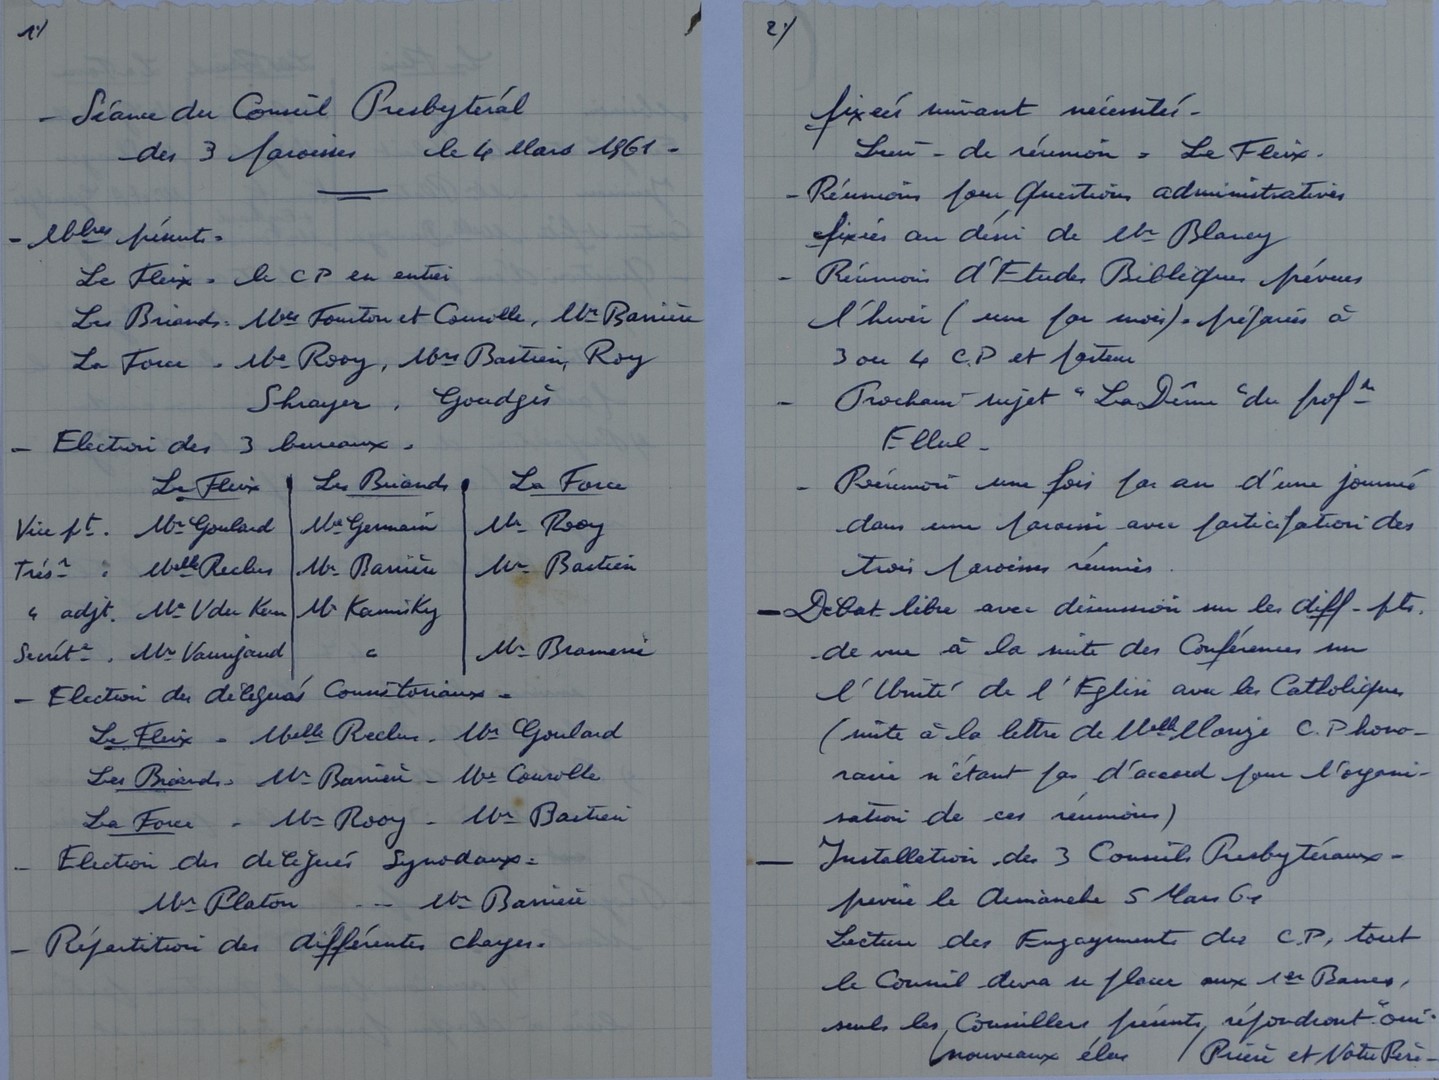 1°/
- Séance du Conseil Presbytéral
des 3 paroisses le 4 Mars 1961 -
- Mbres présents -
Le Fleix - le C P en entier
Les Briands - Mrs Fourton et Courolle, Mr Barrière
La Force - Mr Rooy, Mrs Bastien, Roy
Shrayer, Goudgis
- Election des 3 bureaux -
Le Fleix Les Briands La Force
Vice pt. Mr Goulard Mr Germain Mr Rooy
Trésr : Melle Reclus Mr Barrière Mr Bastien
" adjt. Mr V der Kam Mr Kaminky
Secrétre. Mr Vaurijaud " Mr Bramerie
- Election des délégués Consistoriaux -
Le Fleix - Melle Reclus - Mr Goulard
Les Briands - Mr Barrière - Mr Courolle
La Force - Mr Rooy - Mr Bastien
- Election des délégués Synodaux -
Mr Platon -- Mr Barrière
- Répartition des différentes charges -
2°/
fixées suivant nécessités -
Lieu - de réunion = Le Fleix -
- Réunions pour Questions administratives
fixées au désir de Mr Blancy
- Réunions d'Etudes Bibliques prévues
l'hiver (une par mois) - préparées à
3 ou 4 C.P et pasteur
- Prochain sujet "La Dîme" du profr
Ellul -
- Réunion une fois par an d'une journée
dans une paroisse avec participation des
trois paroisses réunies.
- Débat libre avec discussion sur les diff - pts.
de vue à la suite des Conférences sur
l'Unité de l'Eglise avec les Catholiques
(suite à la lettre de Melle Monize C.P hono-
raire n'étant pas d'accord pour l'organi-
sation de ces réunions)
- Installation des 3 Conseils Presbytéraux -
prévue le dimanche 5 Mars 61
Lecture des Engagements des C.P, tout
le Conseil devra se placer aux 1er Bancs,
seuls les Conseillers présents, répondront "oui"
(nouveaux élus / Prière et Notre Père -